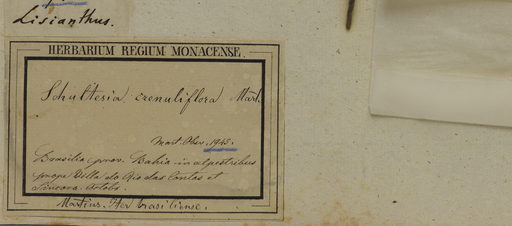 Lisianthus.
HERBARIUM REGIUM MONACENSE.
Schultesia crenuliflora Mart.
Mart. Obs. 1945.
Brasilia prov. Bahia in alpestribus
prope Villa do Rio das Contas et
Sincora. Octobr.
Martius. Her brasiliense.